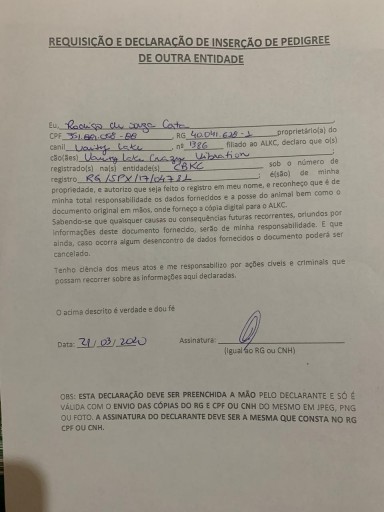 REQUISIÇÃO E DECLARAÇÃO DE INSERÇÃO DE PEDIGREE
DE OUTRA ENTIDADE
Eu, Rodrigo de Souza Costa
CPF , RG proprietário(a) do
canil Vanity Lake , nº 1386 filiado ao ALKC, declaro que o(s)
cão(ães) Vanity Lake Crazy Vibration ;
registrado(s) na(s) entidade(s) CBKC sob o número de
registro RG/SPX/17/04721 ; é(são) de minha
propriedade, e autorizo que seja feito o registro em meu nome, e reconheço que é de
minha total responsabilidade os dados fornecidos e a posse do animal bem como o
documento original em mãos, onde forneço a cópia digital para o ALKC.
Sabendo-se que quaisquer causas ou consequências futuras recorrentes, oriundos por
informações deste documento fornecido, serão de minha responsabilidade. E que
ainda, caso ocorra algum desencontro de dados fornecidos o documento poderá ser
cancelado.
Tenho ciência dos meus atos e me responsabilizo por ações cíveis e criminais que
possam recorrer sobre as informações aqui declaradas.
O acima descrito é verdade e dou fé
Data: 21/03/2020 Assinatura:
(Igual ao RG ou CNH)
OBS: ESTA DECLARAÇÃO DEVE SER PREENCHIDA A MÃO PELO DECLARANTE E SÓ É
VÁLIDA COM O ENVIO DAS CÓPIAS DO RG E CPF OU CNH DO MESMO EM JPEG, PNG
OU FOTO. A ASSINATURA DO DECLARANTE DEVE SER A MESMA QUE CONSTA NO RG
CPF OU CNH.